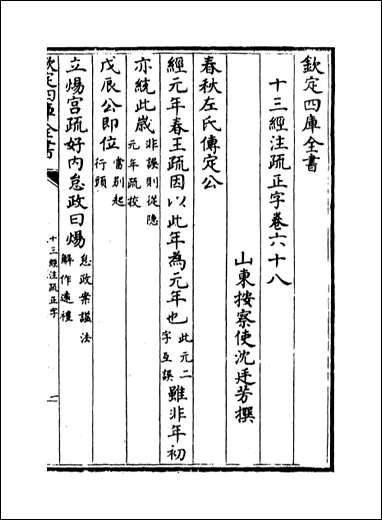 欽定四庫全書
十三經注疏正字卷六十八
山東按察使沈廷芳撰
春秋左氏傳定公
經元年春王疏因以此年為元年也此元二字互誤雖非年初
亦統此歲非誤則從隱元年疏挍
戊辰公即位當别起行頭
立煬宫疏好内怠政曰煬怠政案諡法解作遠禮
欽定四庫全書
十三經注疏正字